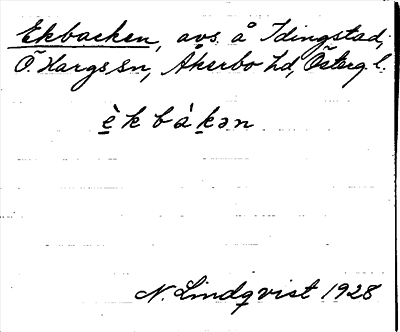 Ekbacken, avs. å Idingstad,
Ö. Hargs sn, Åkerbo hd, Österg. l.
è̱ k b á ḵ ə n
N. Lindqvist 1928